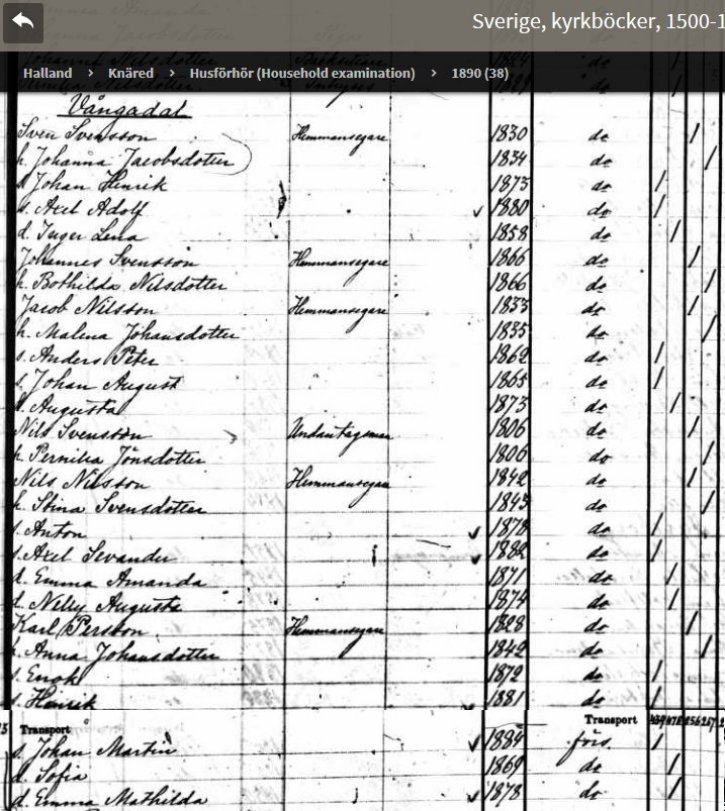 Sverige, kyrkböcker, 1500-1
Halland > Knäred > Husförhör (Household examination) > 1890 (38)
Vångadal
Sven Svensson Hemmansegare 1830 do /
h. Johanna Jacobsdotter 1834 do /
s. Johan Henrik 1873 do /
s. Axel Adolf ✓ 1880 do /
d. Inger Lena 1858 do /
Johannes Svensson Hemmansegare 1866 do /
h. Bothilda Nilsdotter 1866 do /
Jacob Nilsson Hemmansegare 1833 do /
h. Malena Johansdotter 1835 do /
s. Anders Peter 1862 do /
s. Johan August 1865 do /
d. Augusta 1873 do /
Nils Svensson Undantagsman 1806 do /
h. Pernilla Jönsdotter 1806 do /
Nils Nilsson Hemmansegare 1842 do /
h. Stina Svensdotter 1843 do /
s. Anton ✓ 1878 do /
s. Axel Sevander ✓ 1882 do /
d. Emma Amanda 1871 do /
d. Nelly Augusta 1874 do /
Karl Persson Hemmansegare 1828 do /
h. Anna Johansdotter 1842 do /
s. Enok 1872 do /
s. Henrik 1881 do /
Transport Transport
s. Johan Martin ✓ 1884 förs. /
d. Sofia 1869 do /
d. Emma Mathilda ✓ 1878 do /